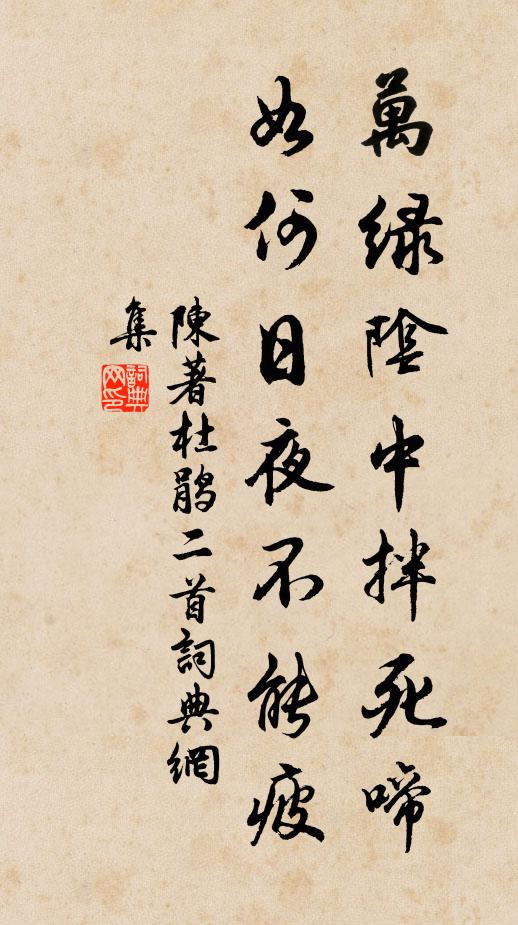 萬綠陰中拌死啼
如何日夜不能疲
陳著杜鵑二首詞典網
集
詞典
网印